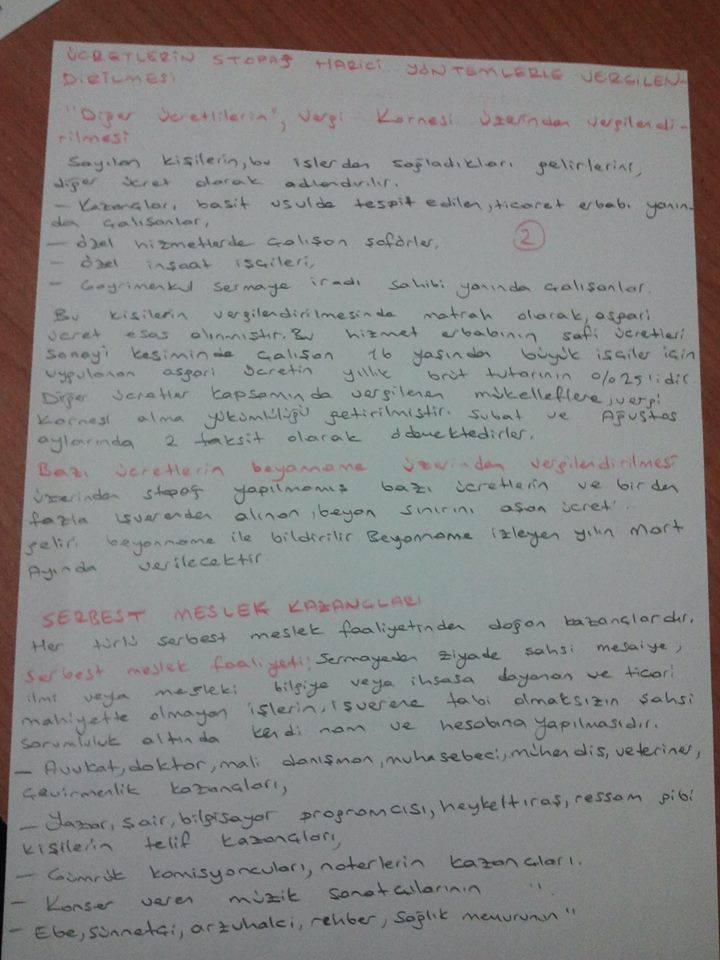 ÜCRETLERİN STOPAJ HARİCİ YÖNTEMLERLE VERGİLEN-
DİRİLMESİ
"Diğer Ücretlilerin", Vergi Karnesi Üzerinden vergilendi-
rilmesi
Sayılan kişilerin, bu işlerden sağladıkları gelirlerini,
diğer ücret olarak adlandırılır.
- Kazançları, basit usulde tespit edilen, ticaret erbabı yanın-
da çalışanlar,
- özel hizmetlerde çalışan şoförler,
2
- özel inşaat işçileri,
- Gayrimenkul sermaye iradı sahibi yanında çalışanlar.
Bu kişilerin vergilendirilmesinde matrah olarak, asgari
ücret esas alınmıştır. Bu hizmet erbabının safi ücretleri
sanayi kesiminde çalışan 16 yaşından büyük işçiler için
uygulanan asgari ücretin yıllık brüt tutarının %25'idir
Diğer ücretler kapsamında vergilenen mükelleflere, vergi
karnesi alma yükümlülüğü getirilmiştir. Şubat ve Ağustos
aylarında 2 taksit olarak ödemektedirler.
Bazı ücretlerin beyanname üzerinden vergilendirilmesi
üzerinden stopaj yapılmamış bazı ücretlerin ve birden
fazla işverenden alınan, beyan sınırını aşan ücret
geliri beyanname ile bildirilir Beyanname izleyen yılın Mart
Ayında verilecektir
SERBEST MESLEK KAZANÇLARI
Her türlü serbest meslek faaliyetinden doğan kazançlardır.
Serbest meslek faaliyeti; Sermayeden ziyade şahsi mesaiye,
ilmi veya mesleki bilgiye veya ihtisasa dayanan ve ticari
mahiyette olmayan işlerin, işverene tabi olmaksızın şahsi
sorumluluk altında kendi nam ve hesabına yapılmasıdır.
- Avukat, doktor, mali danışman, muhasebeci, mühendis, veteriner,
çevirmenlik kazançları,
- Yazar, şair, bilgisayar programcısı, heykeltıraş, ressam gibi
kişilerin telif kazançları,
- Gümrük komisyoncuları, noterlerin kazançları.
- Konser veren müzik sanatçılarının ".
- Ebe, sünnetçi, arzuhalci, rehber, sağlık memurunun "